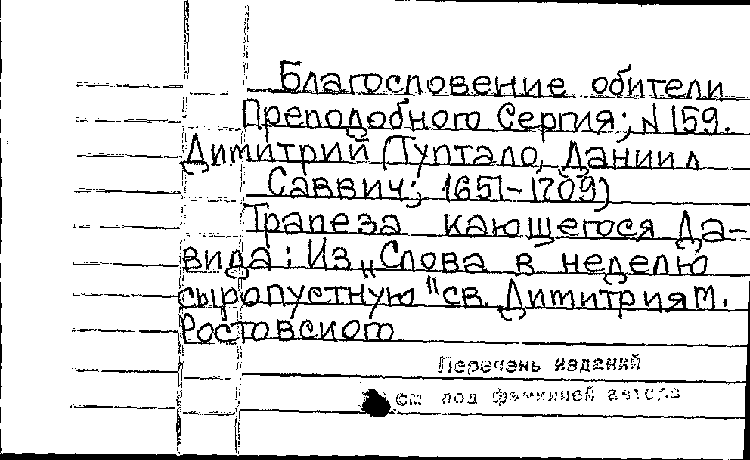 Благословение обители
Преподобного Сергия; N 159.
Димитрий (Туптало, Даниил
Саввич; 1651-1709)
Трапеза кающегося Да-
вида: Из „Слова в неделю
сыропустную" св. Димитрия м.
Ростовского
Перечень изданий
см под фамилией автора